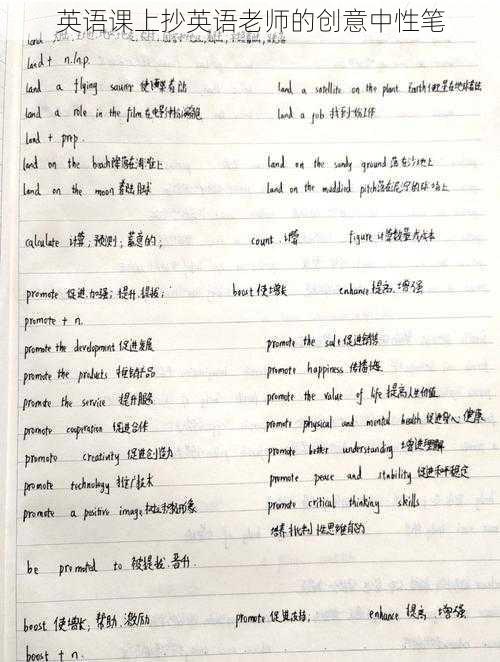 英语课上抄英语老师的创意中性笔
land
land + n./n.p.
land a flying saucer 使飞碟着陆 land a satellite on the plant Earth 使卫星在地球着陆
land a role in the film 在电影中扮演角色 land a job 找到一份工作
land + prep.
land on the beach 降落在海滩上 land on the sandy ground 落在沙地上
land on the moon 着陆月球 land on the muddied pitch 落在泥泞的球场上
calculate 计算; 预测; 蓄意的; count 计算 figure 计算数量或成本
promote 促进, 加强; 提升, 提拔; boost 使增长 enhance 提高, 增强
promote + n.
promote the development 促进发展 promote the sale 促进销售
promote the products 推销产品 promote happiness 传播
promote the service 提升服务 promote the value of life 提高人生价值
promote cooperation 促进合作 promote physical and mental health 促进身心健康
promote creativity 促进创造力 promote better understanding 增进理解
promote technology 推广技术 promote peace and stability 促进和平稳定
promote a positive image 树立积极形象 promote critical thinking skills
培养批判性思维能力
be promoted to 被提拔, 晋升
boost 使增长, 帮助, 激励 promote 促进 enhance 提高, 增强
boost + n.